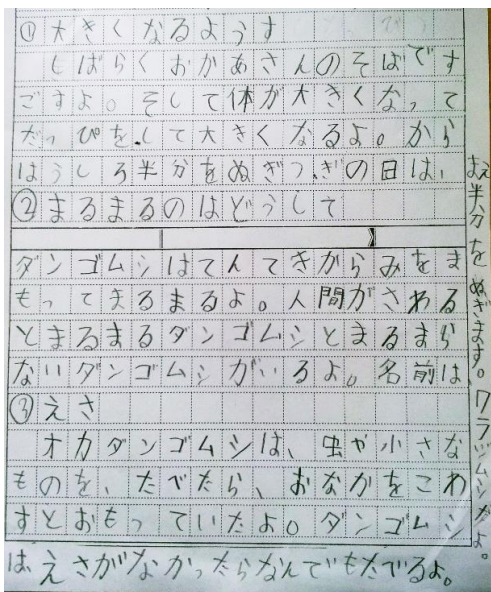 ①大きくなるようす
しばらくおかあさんのそばです
ごすよ。そして体が大きくなって
だっぴをして大きくなるよ。から
はうしろ半分をぬぎつぎの日は、
まえ半分をぬぎます。
②まるまるのはどうして
ダンゴムシはてんてきからみをま
もってまるまるよ。人間がさわる
とまるまるダンゴムシとまるまら
ないダンゴムシがいるよ。名前は、
ワラジムシだよ。
③えさ
オカダンゴムシは、虫や小さな
ものを、たべたら、おなかをこわ
すとおもっていたよ。ダンゴムシ
はえさがなかったらなんでもたべるよ。